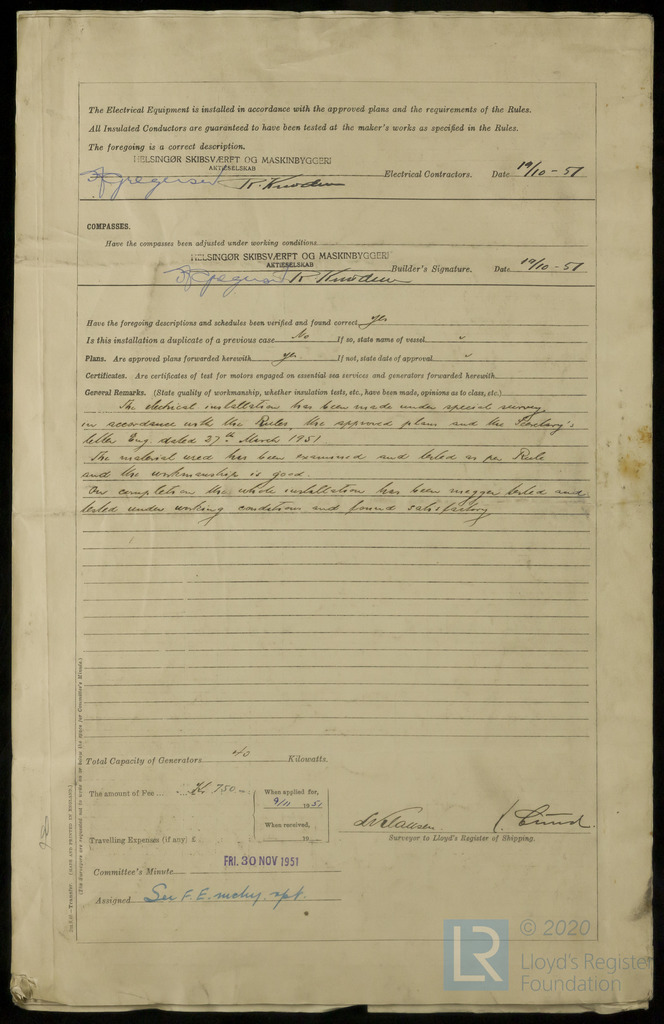 The Electrical Equipment is installed in accordance with the approved plans and the requirements of the Rules.
All Insulated Conductors are guaranteed to have been tested at the maker's works as specified in the Rules.
The foregoing is a correct description.
HELSINGØR SKIBSVÆRFT OG MASKINBYGGERI
AKTIESELSKAB
Electrical Contractors. Date 19/10-51
COMPASSES.
Have the compasses been adjusted under working conditions
HELSINGØR SKIBSVÆRFT OG MASKINBYGGERI
AKTIESELSKAB
Builder's Signature. Date 19/10-51
Have the foregoing descriptions and schedules been verified and found correct yes
Is this installation a duplicate of a previous case No If so, state name of vessel "
Plans. Are approved plans forwarded herewith yes If not, state date of approval "
Certificates. Are certificates of test for motors engaged on essential sea services and generators forwarded herewith
General Remarks. (State quality of workmanship, whether insulation tests, etc., have been made, opinions as to class, etc.)
The electrical installation has been made under special survey
in accordance with the Rules, the approved plans and the Secretary's
letter Eng. dated 27th March 1951
The material used has been examined and tested as per Rule
and the workmanship is good.
On completion the whole installation has been megger tested and
tested under working conditions and found satisfactory
Total Capacity of Generators 40 Kilowatts.
The amount of Fee ... Kr. 750.-
When applied for,
9/11 1951
When received,
19
Travelling Expenses (if any) £
Surveyor to Lloyd's Register of Shipping.
FRI. 30 NOV 1951
Committee's Minute
Assigned See F.E. mchy. rpt.
(The Surveyors are requested not to write on or below the space for Committee's Minute.)
© 2020
LR
Lloyd's Register
Foundation